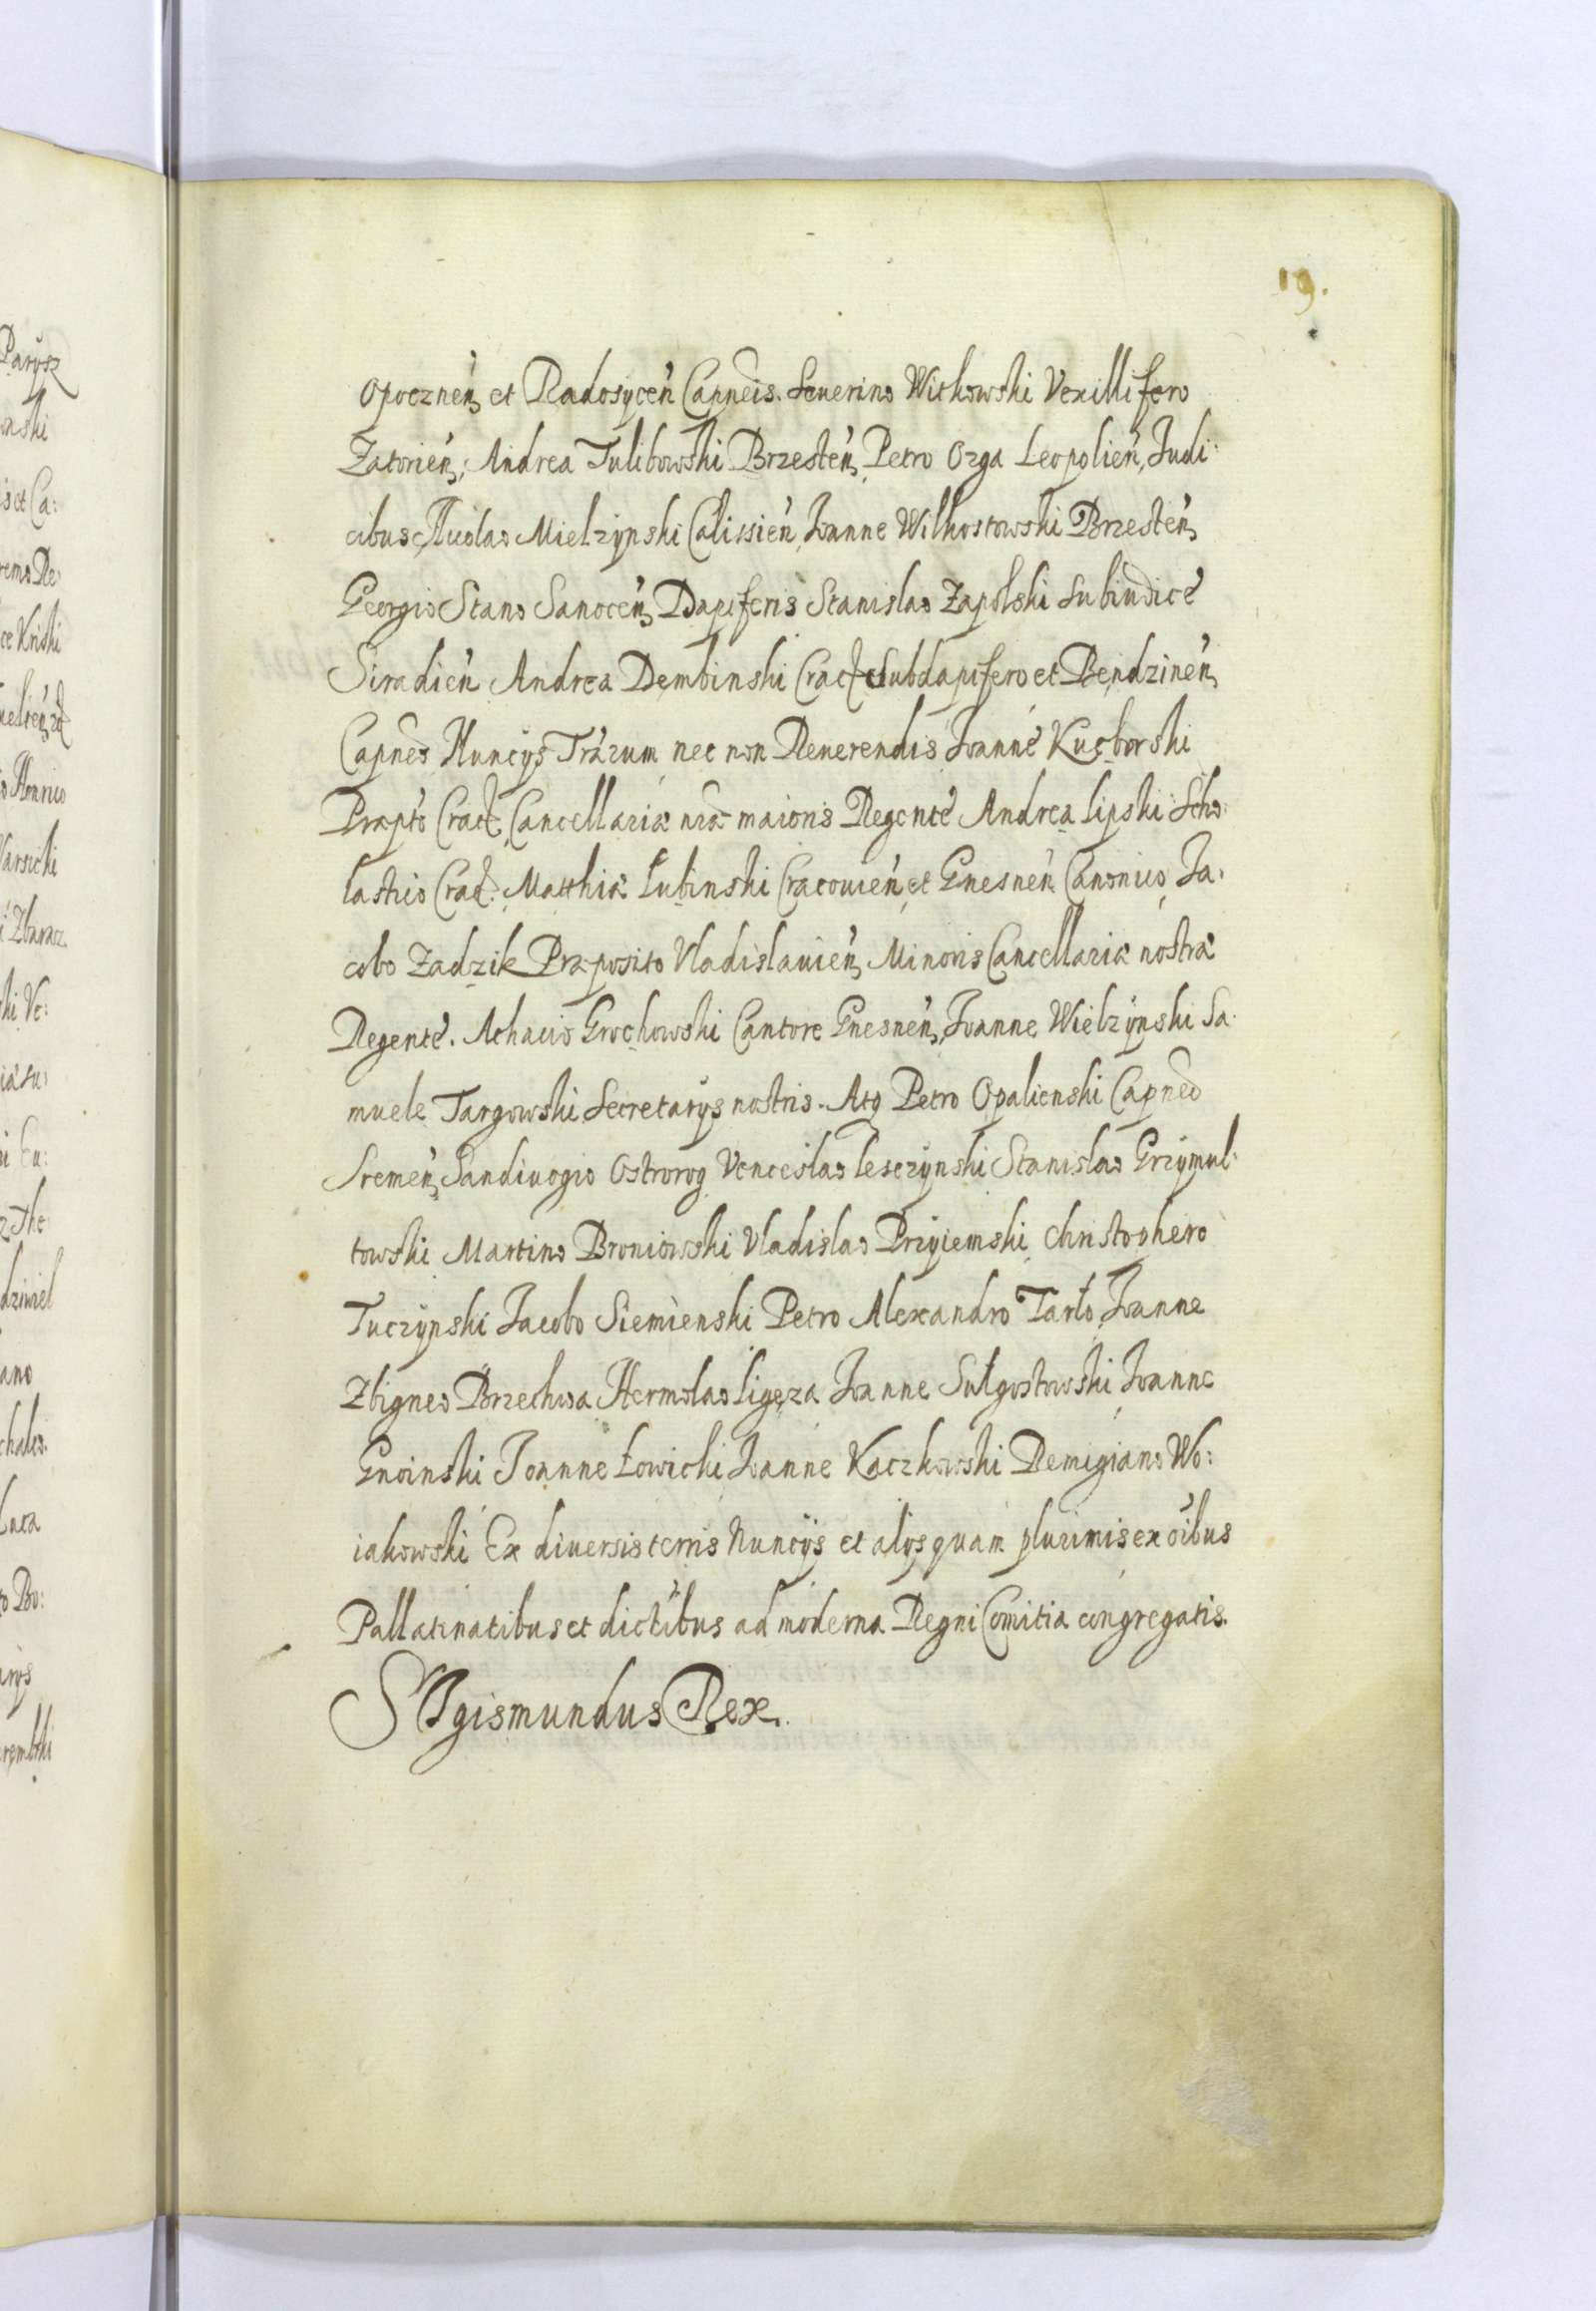 19.
Opocznen̄ et Radosycen̄ Capneis. Seuerino Witkowski Vexillifero
Zatorien̄, Andrea Tulibowski Brzesten̄, Petro Ozga Leopolien̄, Judi:
cibus, Nicolao Mielzÿnski Calissien̄, Joanne Wilkostowski Brzesten̄,
Georgio Stano Sanocen̄, Dapiferis Stanislao Zapolski Subiudice
Siradien̄ Andrea Dembinski Crac̄ Subdapifero et Bendzinen̄,
Capneo Nuncÿs Tr̄arum nec non Reuerendis Joanne Kucborski
Præpto Crac̄, Cancellariæ nr̄æ maioris Regente Andrea Lipski Scho:
lastico Crac̄. Matthia Lubinski Cracouien̄, et Gnesnen̄ Canonico, Ja:
cobo Zadzik Præposito Vladislauien̄, Minoris Cancellariæ nostræ
Regente. Achacio Grochowski Cantore Gnesnen̄, Joanne Wielzÿnski Sa:
muele Targowski Secretarÿs nostris. Atq Petro Opalienski Capneo
Sremen̄, Sandiuogio Ostrorog Venceslao Lesczÿnski Stanislao Grzÿmul:
towski Martino Broniowski Vladislao Przÿiemski Christophero
Tuczÿnski Jacobo Siemienski Petro Alexandro Tarło, Joanne
Zbigneo Brzechwa Hermolao Ligęza Joanne Sulgostowski, Joanne
Gnoinski Joanne Łowicki Joanne Kaczkowski Remigiano Wo:
iakowski Ex diuersis terris Nuncÿs et alÿs quam plurimis ex oībus
Pallatinatibus et dictībus ad moderna Regni Comitia congregatis.
SIgismundus Rex.
Parÿsz